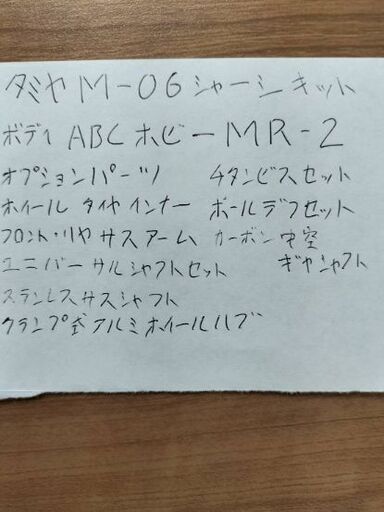 タミヤ M-06 シャーシ キット
ボディ ABC ホビー MR-2
オプションパーツ チタンビスセット
ホイール タイヤ インナー ボールデフセット
フロント・リヤ サスアーム カーボン 中空
ユニバーサルシャフトセット ギヤシャフト
ステンレスサスシャフト
クランプ式アルミホイールハブ